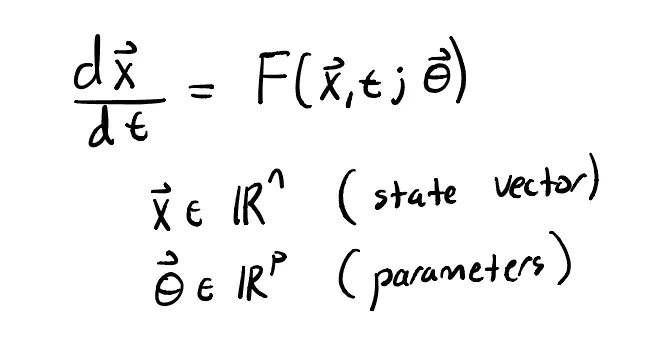 dx⃗/dt = F(x⃗, t; θ⃗)
x⃗ ∈ ℝⁿ (state vector)
θ⃗ ∈ ℝᵖ (parameters)